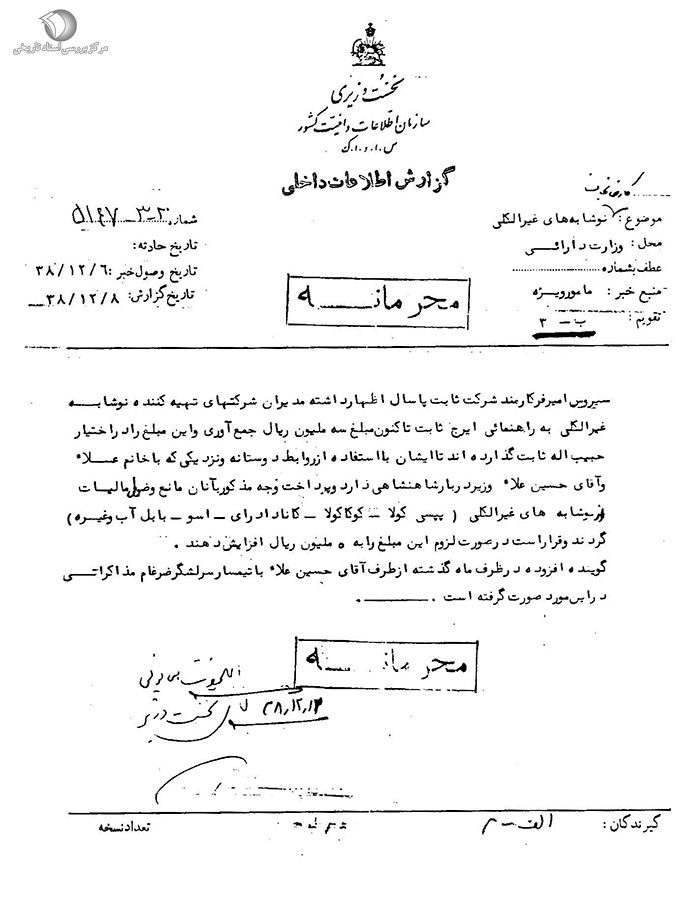 مرکز بررسی اسناد تاریخی
نخست وزیری
سازمان اطلاعات و امنیت کشور
س.ا.و.ا.ک
گزارش اطلاعات داخلی
موضوع: نوشابه‌های غیرالکلی
محل: وزارت دارائی
عطف بشماره:
منبع خبر: مامور ویژه
تقویم: ب - ۳
شماره:
تاریخ حادثه:
تاریخ وصول خبر: ۳۸/۱۲/۶
تاریخ گزارش: ۳۸/۱۲/۸
محرمانه
سیروس امیرفر کارمند شرکت ثابت پاسال اظهار داشته مدیران شرکتهای تهیه کننده نوشابه
غیرالکلی به راهنمائی ایرج ثابت تاکنون مبلغ سه ملیون ریال جمع‌آوری و این مبلغ را در اختیار
حبیب اله ثابت گذارده‌اند تا ایشان با استفاده از روابط دوستانه و نزدیکی که با خانم علاء
و آقای حسین علاء وزیر دربار شاهنشاهی دارد و پرداخت وجه مذکور بآنان مانع وصول مالیات
از نوشابه های غیرالکلی (پپسی کولا - کوکاکولا - کانادادرای - اسو - بابل آپ و غیره)
گردند و قرار است در صورت لزوم این مبلغ را به ۵ ملیون ریال افزایش دهند.
گوینده افزوده در ظرف ماه گذشته از طرف آقای حسین علاء با تیمسار سرلشگر ضرغام مذاکراتی
در این مورد صورت گرفته است.
محرمانه
نخست وزیر
گیرندگان:
تعداد نسخه